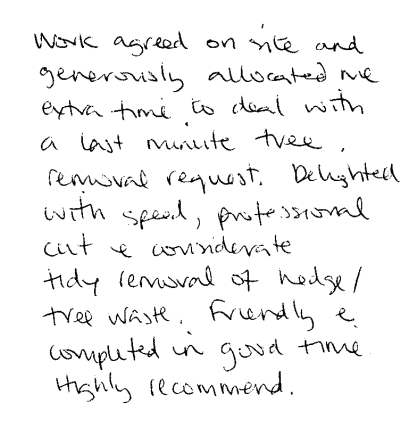 Work agreed on site and
generously allocated me
extra time to deal with
a last minute tree
removal request. Delighted
with speed, professional
cut & considerate
tidy removal of hedge/
tree waste. Friendly &
completed in good time
Highly recommend.